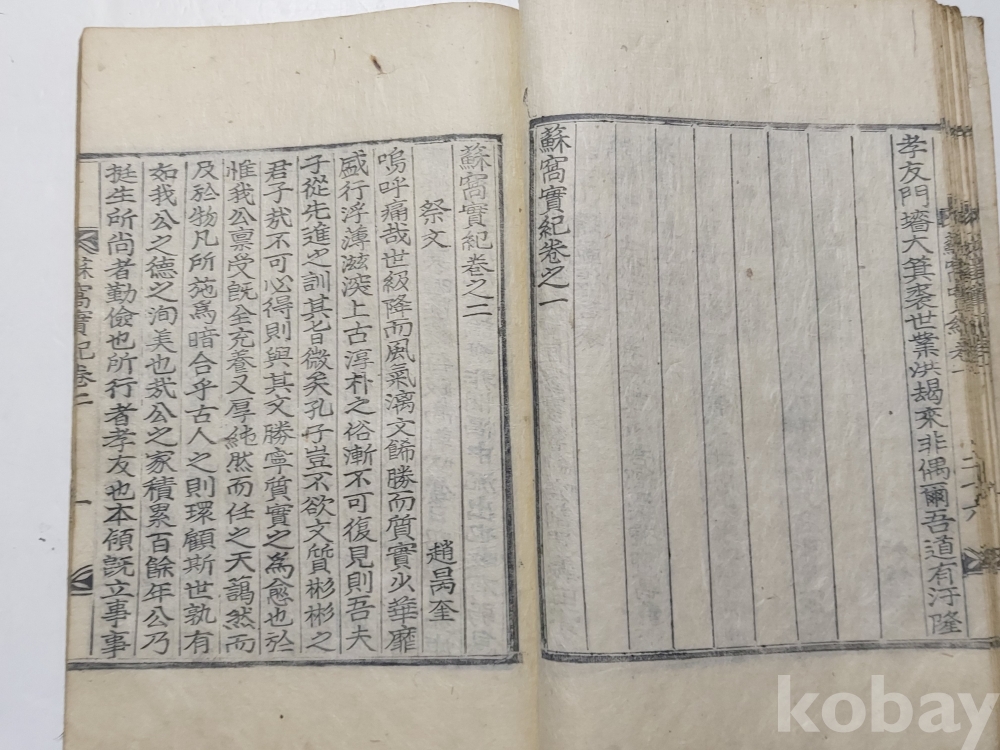 孝友門墻大箕裘世業洪朅來非偶爾吾道有汙隆
蘇窩實紀卷之一
蘇窩實紀卷之二
祭文
趙昺奎
嗚呼痛哉世級降而風氣漓文餙勝而質實少華靡
盛行浮薄滋深上古淳朴之俗漸不可復見則吾夫
子從先進之訓其旨微矣孔子豈不欲文質彬彬之
君子哉不可必得則與其文勝寧質實之爲愈也於
惟我公禀受旣全充養又厚純然而任之天藹然而
及於物凡所施爲暗合乎古人之則環顧斯世孰有
如我公之德之洵美也哉公之家積累百餘年公乃
挺生所尚者勤儉也所行者孝友也本傾旣立事事
蘇窩實紀卷二
一
kobay